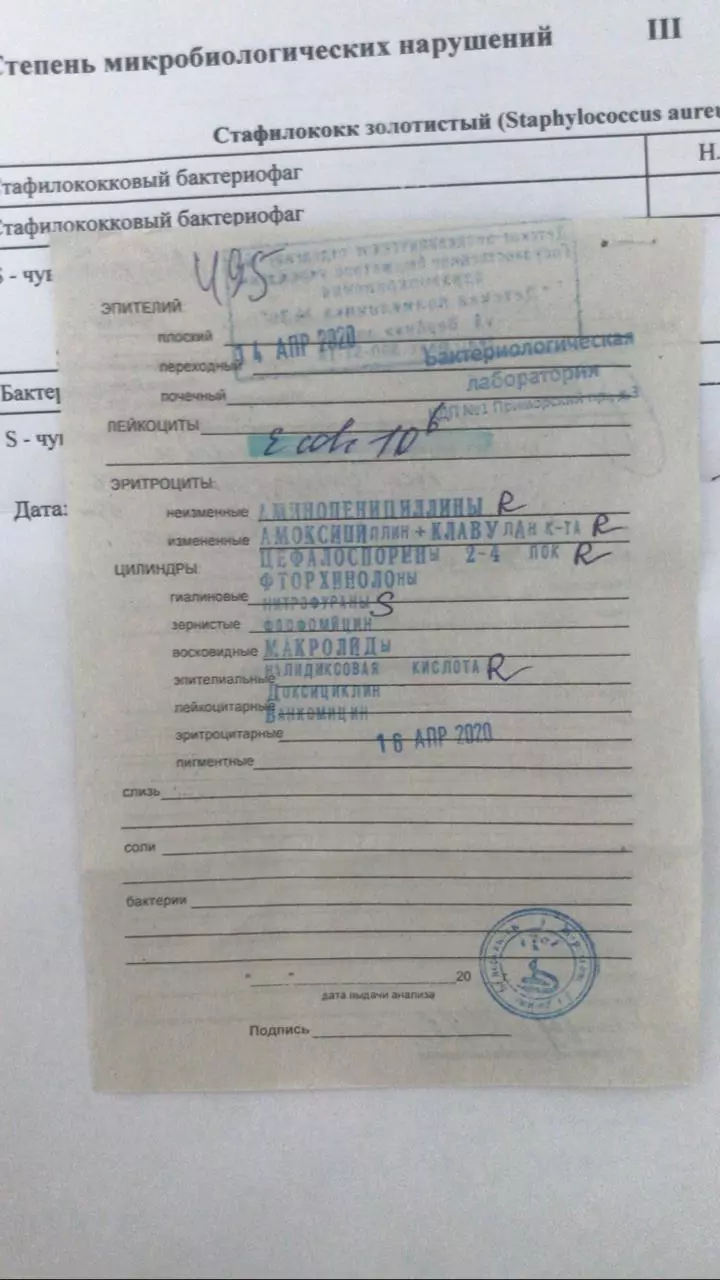 Степень микробиологических нарушений III
Стафилококк золотистый (Staphylococcus aureu
Стафилококковый бактериофаг Н.
Стафилококковый бактериофаг
S - чув
495
ЭПИТЕЛИЙ
плоский
04 АПР 2020
переходный
Бактериологическая
почечный
лаборатория
КДП №1 Приморский пр., д.3
ЛЕЙКОЦИТЫ
E coli 10⁶
Бактер
S - чув
Дата:
ЭРИТРОЦИТЫ:
неизменные АМИНОПЕНИЦИЛЛИНЫ R
измененные АМОКСИЦИЛЛИН + КЛАВУЛАН К-ТА R
ЦЕФАЛОСПОРЕНЫ 2-4 ПОК R
ЦИЛИНДРЫ
ФТОРХИНОЛОНЫ
гиалиновые НИТРОФУРАНЫ S
зернистые ФОСФОМИЦИН
восковидные МАКРОЛИДЫ
эпителиальные НАЛИДИКСОВАЯ КИСЛОТА R
ДОКСИЦИКЛИН
лейкоцитарные ВАНКОМИЦИН
эритроцитарные
16 АПР 2020
пигментные
слизь
соли
бактерии
" " 20 г.
дата выдачи анализа
Подпись